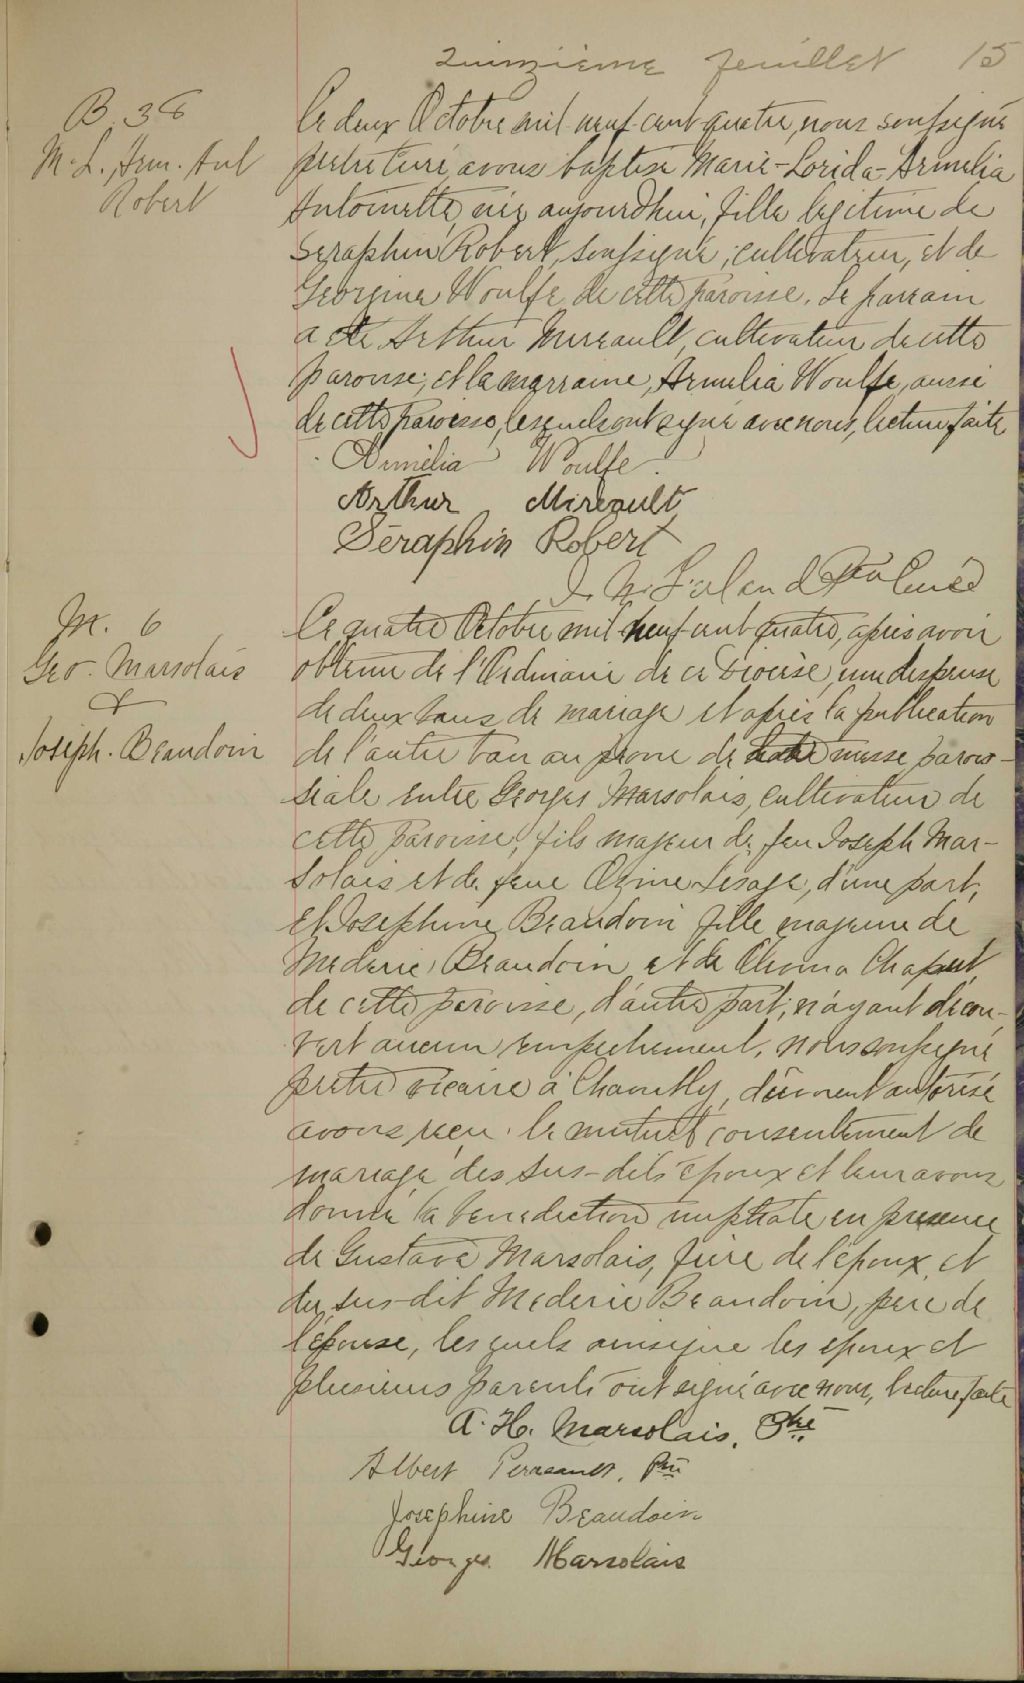 quinzième feuillet 15
B. 38
M. L. Arm. Ant
Robert
Ce deux Octobre mil neuf cent quatre, nous soussigné
prêtre curé, avons baptisé Marie-Lorida-Armelia
Antoinette, née aujourdhui, fille legitime de
Seraphin Robert, soussigné, cultivateur, et de
Georgina Woulfe de cette paroisse. Le parrain
a été Arthur Mireault, cultivateur de cette
paroisse; et la marraine, Armelia Woulfe, aussi
de cette paroisse, lesquels ont signé avec nous, lecture faite
Armélia Woulfe.
Arthur Mireault
Séraphin Robert
Ptre Curé
M. 6
Geo. Marsolais
&
Joseph. Beaudoin
Ce quatre Octobre mil neuf cent quatre, après avoir
obtenu de l'Ordinaire de ce Diocèse, une dispense
de deux bans de mariage et après la publication
de l'autre ban au prone de notre messe parois-
siale entre Georges Marsolais, cultivateur de
cette paroisse, fils majeur de feu Joseph Mar-
solais et de feue Ozine Lesage, d'une part,
et Josephine Beaudoin fille majeure de
Mederic Beaudoin et de Chaput,
de cette paroisse, d'autre part; n'ayant décou-
vert aucun empechement, nous soussigné
prêtre vicaire à Chambly, dûment autorisé
avons reçu le mutuel consentement de
mariage des sus-dits époux et leur avons
donné la benediction nuptiale en presence
de Gustave Marsolais, frère de l'époux, et
du sus-dit Mederic Beaudoin, père de
l'épouse, lesquels ainsi que les epoux et
plusieurs parents ont signé avec nous, lecture faite
A. H. Marsolais, Ptre
Albert Perreault, Ptre
Josephine Beaudoin
Georges Marsolais